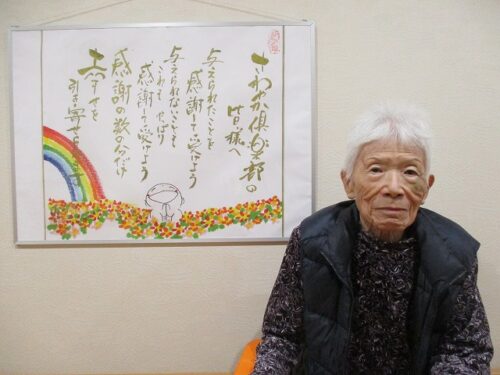 さわやか倶楽部の
皆様へ
与えられたことを
感謝して受けよう
与えられないことも
やっぱり
感謝して受けよう
感謝の数の分だけ
幸せを